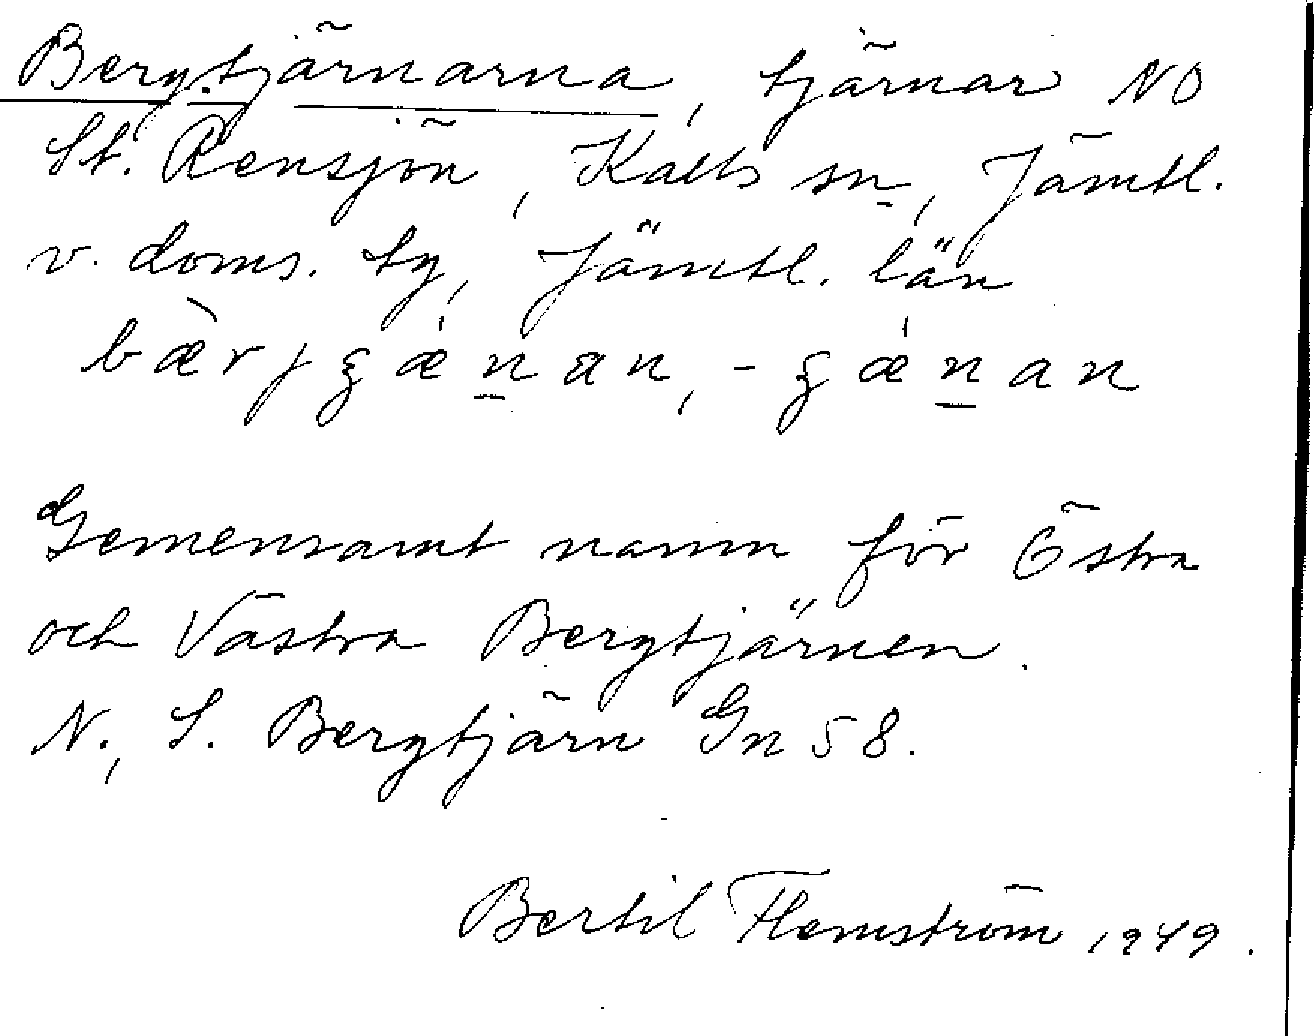 Bergtjärnarna, tjärnar NO
St. Rensjön, Kalls sn, Jämtl.
v. doms. tg, Jämtl. län
bærj
Gemensamt namn för Östra
och Västra Bergtjärnen.
N., S. Bergtjärn Gn 58.
Bertil Flemström 1949.